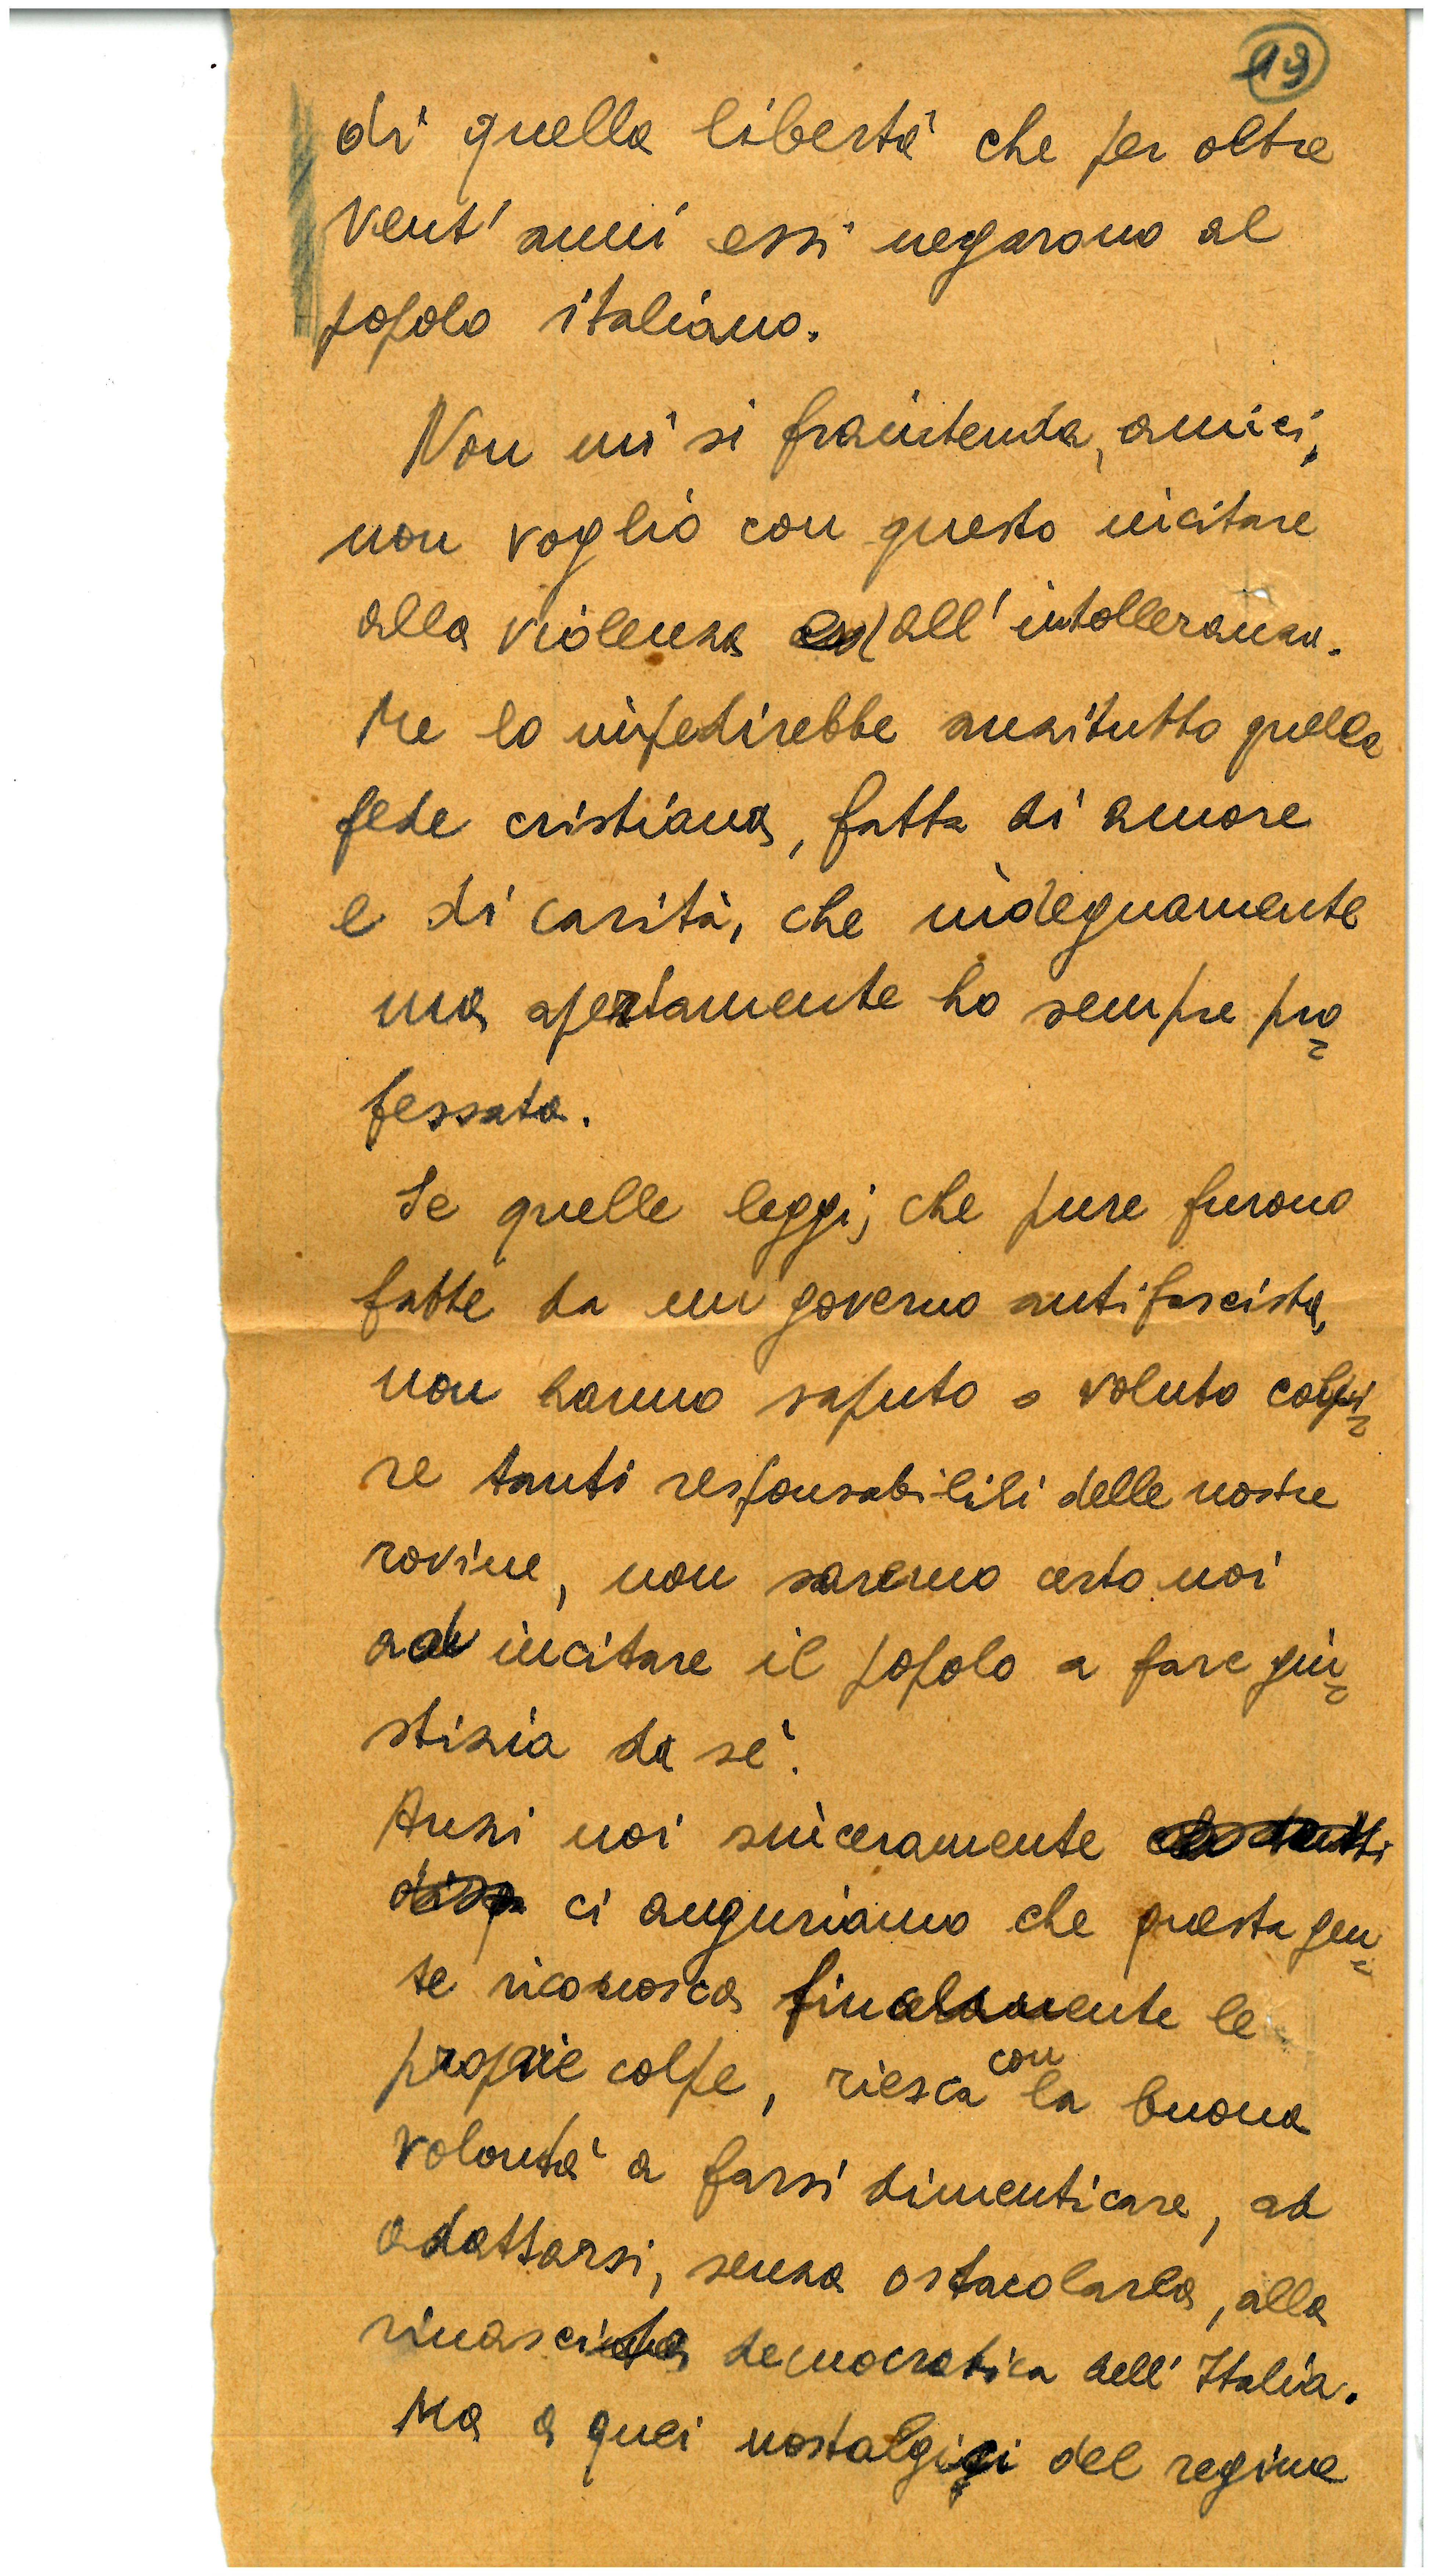 19
di quella libertà che per oltre
vent'anni essi negarono al
popolo italiano.
Non mi si fraintenda, amici,
non voglio con questo incitare
alla violenza ed all'intolleranza.
Me lo impedirebbe anzitutto quella
fede cristiana, fatta di amore
e di carità, che indegnamente
ma apertamente ho sempre pro=
fessata.
Se quelle leggi, che pure furono
fatte da un governo antifascista,
non hanno saputo o voluto colpi=
re tanti responsabilili delle nostre
rovine, non saremo certo noi
ad incitare il popolo a fare giu=
stizia da sé.
Anzi noi sinceramente
ci auguriamo che questa gen=
te riconosca finalmente le
proprie colpe, riesca con la buona
volontà a farsi dimenticare, ad
adattarsi, senza ostacolarla, alla
rinascita democratica dell'Italia.
Ma a quei nostalgici del regime